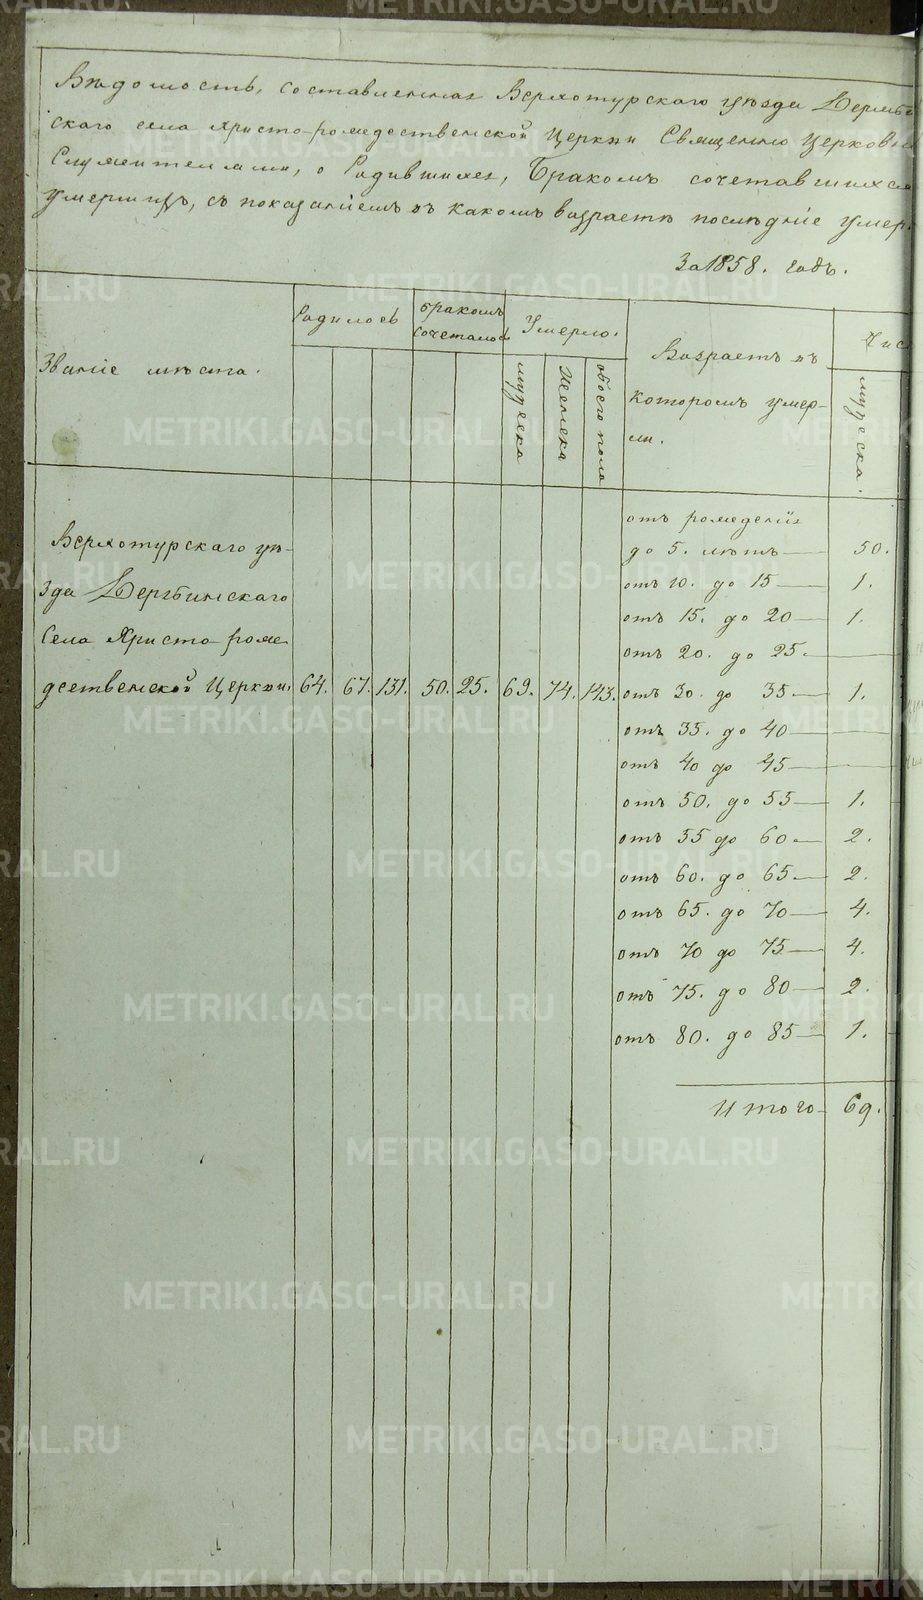 Вѣдомость, составленная Верхотурскаго уѣзда Дерябин
скаго села Христо-рождественской Церкви Священно Церковно
Служителями, о Родившихся, Бракомъ сочетавшихся
умершихъ, съ показаніемъ въ какомъ возрастѣ послѣдніе умер.
За 1858. годъ.
Званіе мѣста.
Родилось
бракомъ сочеталось
Умерло.
мужеска
женска
обоего пола
Возрастъ въ
которомъ умер-
ли.
Чис
мужеска.
Верхотурскаго уѣ-
зда Дерябинскаго
Села Христо рож
дественской Церкви.
64. 67. 131. 50. 25. 69. 74. 143.
отъ рожденія
до 5. лѣтъ — 50.
отъ 10. до 15 — 1.
отъ 15. до 20 — 1.
отъ 20. до 25. —
отъ 30. до 35. — 1.
отъ 35. до 40 —
отъ 40 до 45 —
отъ 50. до 55 — 1.
отъ 55 до 60 — 2.
отъ 60. до 65. — 2.
отъ 65. до 70 — 4.
отъ 70 до 75 — 4.
отъ 75. до 80 — 2.
отъ 80. до 85 — 1.
Итого — 69.
METRIKI.GASO-URAL.RU